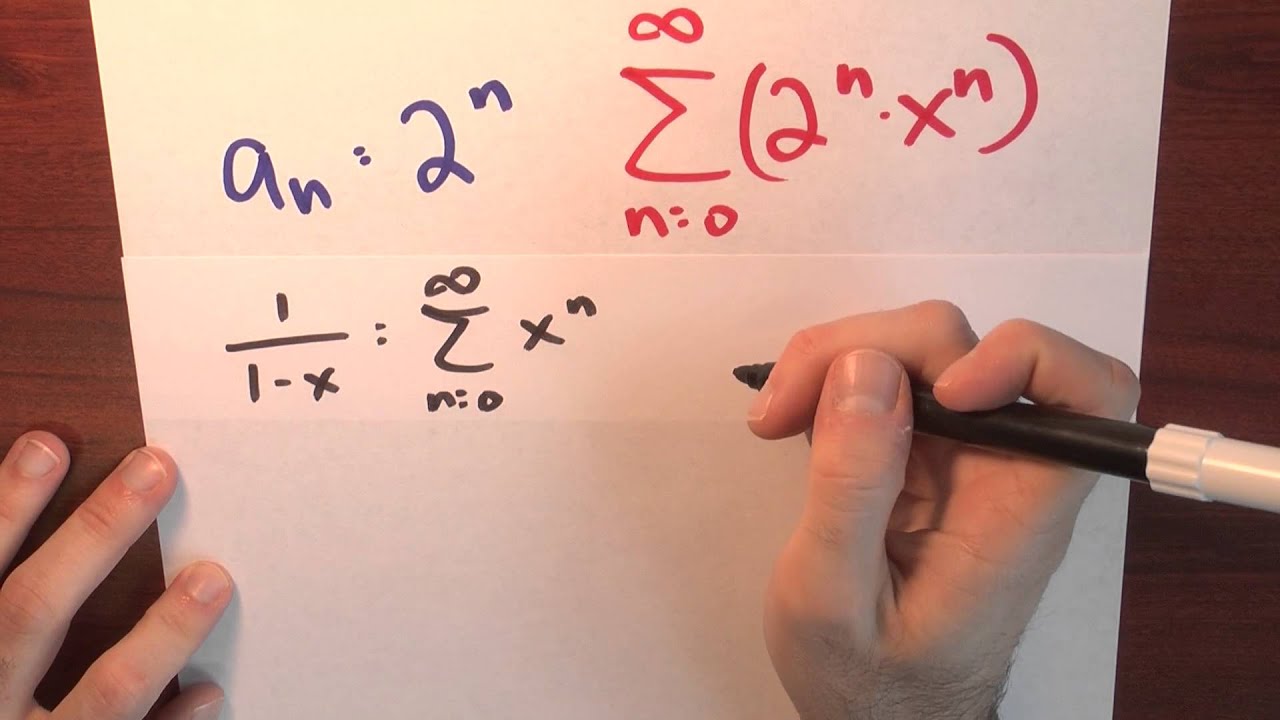 aₙ = 2ⁿ
∑_{n=0}^{∞} (2ⁿ · xⁿ)
1/(1-x) = ∑_{n=0}^{∞} xⁿ